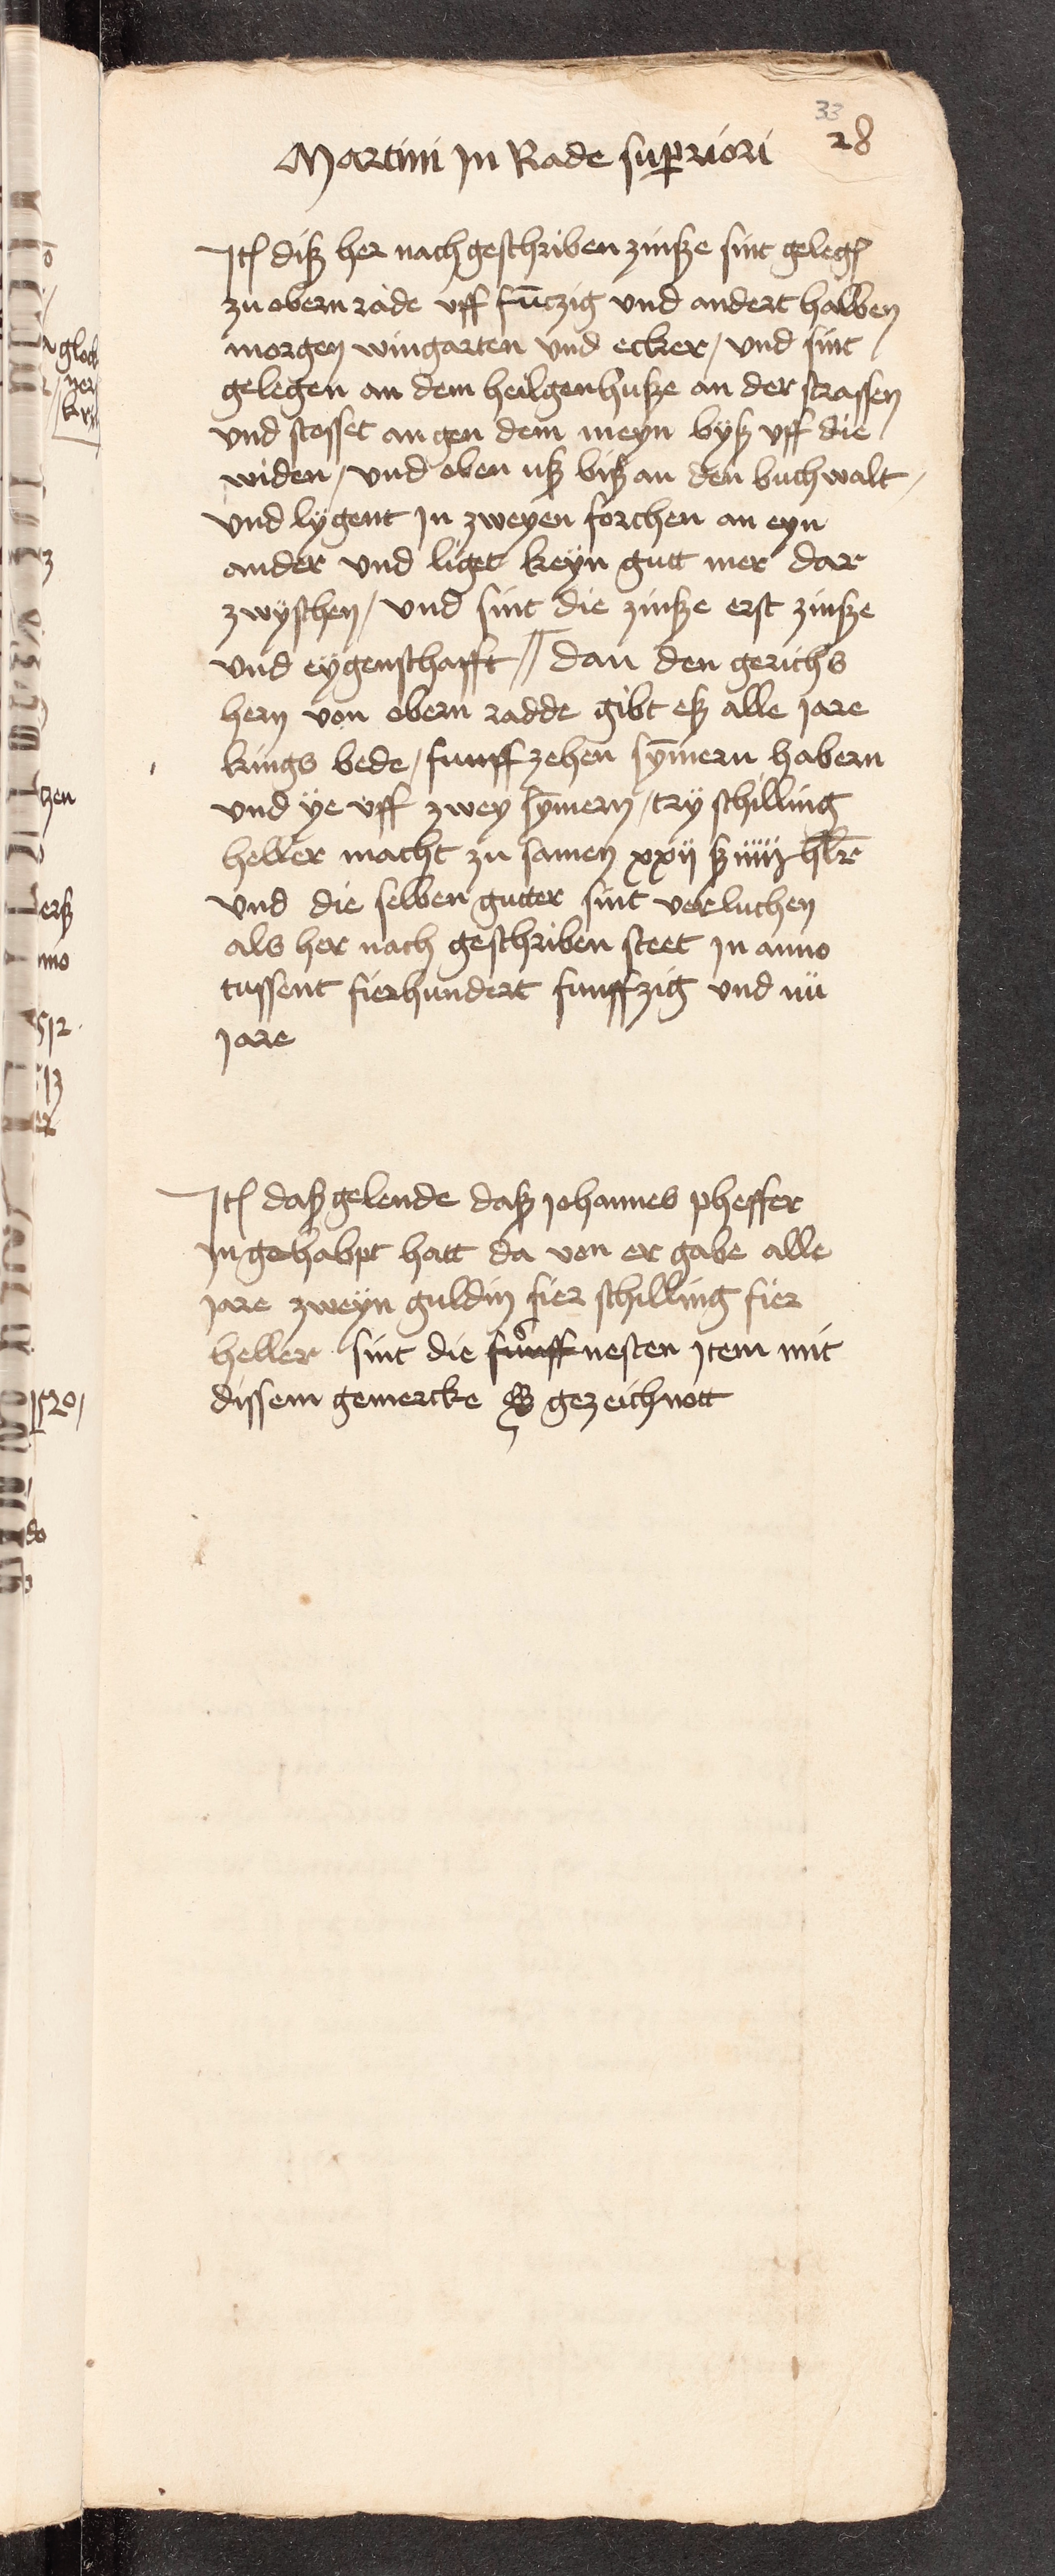 33
28
Martini Jn Rade superiori
Jtem disz her nach geschriben zinsze sint gelegen
zu obern rade vff funczig vnd andert halben
morgen wingarten vnd ecker / vnd sint
gelegen an dem heilgenhusze an der strassen
vnd stosset an gen dem meyn bysz vff die
widen / vnd oben usz bisz an den buchwalt /
vnd lygent Jn zweyen forchen an eyn
ander vnd liget keyn gutt mer dar
zwyschen / vnd sint die zinsze erst zinsze
vnd eygenschafft // dan den gerichs
hern von obern radde gibt esz alle jare
kings bede / funff zehen symern habern
vnd ye vff zwey symern / try schilling
heller macht zu samen xxij ß iiiij hlr
vnd die selben gutter sint verluchen
als her nach geschriben steet Jn anno
tussent fierhundert funffzig vnd nü
jare
Jtem dasz gelende dasz johannes pheffer
Jn gehabpt hatt da von er gabe alle
jare zweyn guldin fier schilling fier
heller sint die funff nesten jtem mit
dissem gemercke gezeichnott
glock
ner
tzen
ersz
nno
512
13
1520 /
do